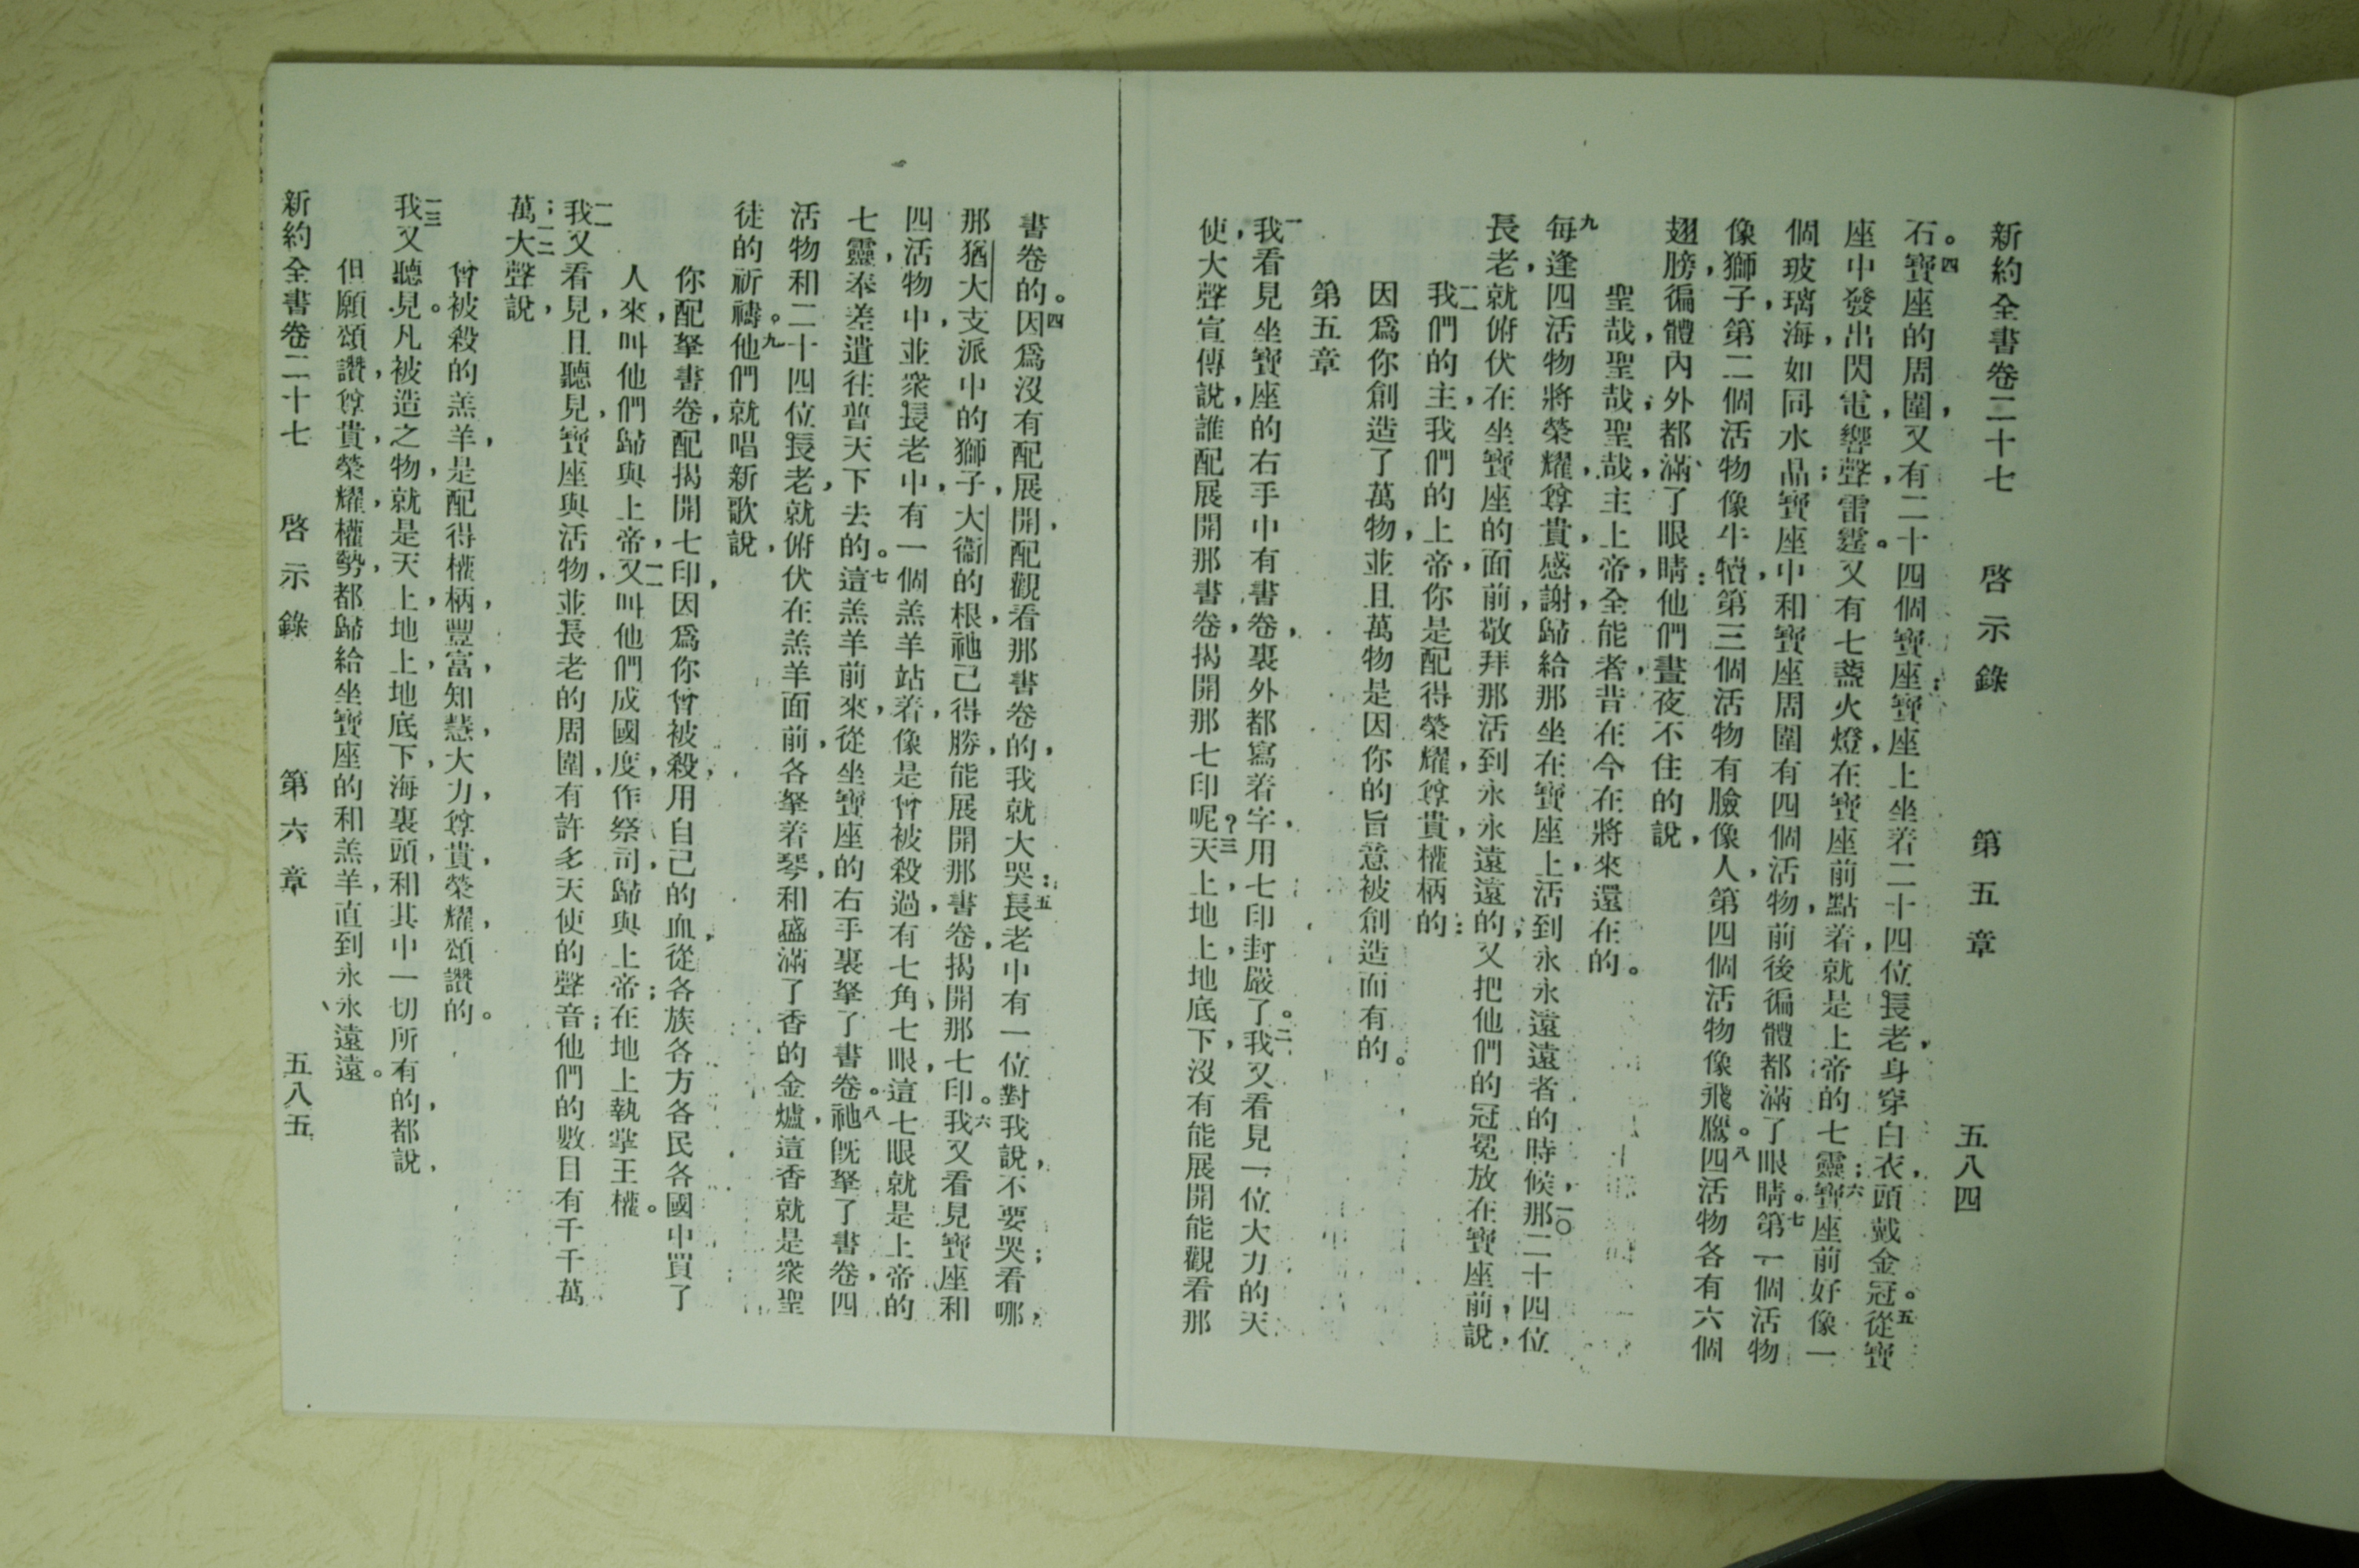 新約全書卷二十七 啓示錄 第五章 五八四
石。四寶座的周圍，又有二十四個寶座；寶座上坐着二十四位長老，身穿白衣，頭戴金冠。五從寶
座中發出閃電，響聲，雷霆。又有七盞火燈，在寶座前點着，就是上帝的七靈；六寶座前好像一
個玻璃海，如同水晶；寶座中和寶座周圍有四個活物，前後徧體都滿了眼睛。七第一個活物
像獅子，第二個活物像牛犢，第三個活物有臉像人，第四個活物像飛鷹。八四活物各有六個
翅膀，徧體內外都滿了眼睛；他們晝夜不住的說，
聖哉，聖哉，聖哉，主上帝，全能者，昔在今在將來還在的。
九每逢四活物將榮耀，尊貴，感謝，歸給那坐在寶座上，活到永永遠遠者的時候，一〇那二十四位
長老，就俯伏在坐寶座的面前，敬拜那活到永永遠遠的，又把他們的冠冕放在寶座前，說，
一一我們的主，我們的上帝，你是配得榮耀，尊貴，權柄的；
因爲你創造了萬物，並且萬物是因你的旨意被創造而有的。
第五章
一我看見坐寶座的右手中有書卷，裏外都寫着字，用七印封嚴了。二我又看見一位大力的天
使，大聲宣傳說，誰配展開那書卷，揭開那七印呢？三天上，地上，地底下，沒有能展開能觀看那
書卷的。四因爲沒有配展開，配觀看那書卷的，我就大哭；五長老中有一位對我說，不要哭；看哪，
那猶大支派中的獅子，大衞的根，祂已得勝，能展開那書卷，揭開那七印。六我又看見寶座和
四活物中，並衆長老中，有一個羔羊站着，像是曾被殺過，有七角，七眼，這七眼就是上帝的
七靈，奉差遣往普天下去的。七這羔羊前來，從坐寶座的右手裏拏了書卷。八祂旣拏了書卷，四
活物和二十四位長老，就俯伏在羔羊面前，各拏着琴，和盛滿了香的金爐，這香就是衆聖
徒的祈禱。九他們就唱新歌說，
你配拏書卷，配揭開七印，因爲你曾被殺，用自己的血，從各族各方各民各國中買了
人來，叫他們歸與上帝，一〇又叫他們成國度，作祭司，歸與上帝；在地上執掌王權。
一一我又看見，且聽見，寶座與活物，並長老的周圍，有許多天使的聲音；他們的數目有千千萬
萬；一二大聲說，
曾被殺的羔羊，是配得權柄，豐富，知慧，大力，尊貴，榮耀，頌讚的。
一三我又聽見。凡被造之物，就是天上，地上，地底下，海裏頭，和其中一切所有的，都說，
但願頌讚，尊貴，榮耀，權勢，都歸給坐寶座的和羔羊，直到永永遠遠。
新約全書卷二十七 啓示錄 第六章 五八五